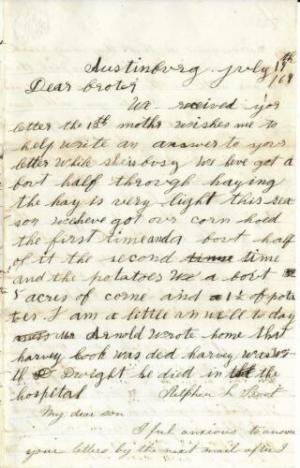 Austinburg July 19th /64
Dear broter
We received yor
letter the 18th mothr wishes me to
help write an answer to your
letter while she is busy We have got a
bout half through haying
the hay is very light this sea
son we have got our corn hold
the first time and a bout half
of it the second time
and the potatoes a bout
5 acres of corne and 1½ of pota
tes. I am a little un well to day
Arnold wrote home that
harvey Cook was ded harvey was
th Dwight he died in the
hospital Stephen L
My dear son
I ful anxious to answer
your letters by the next mail after I